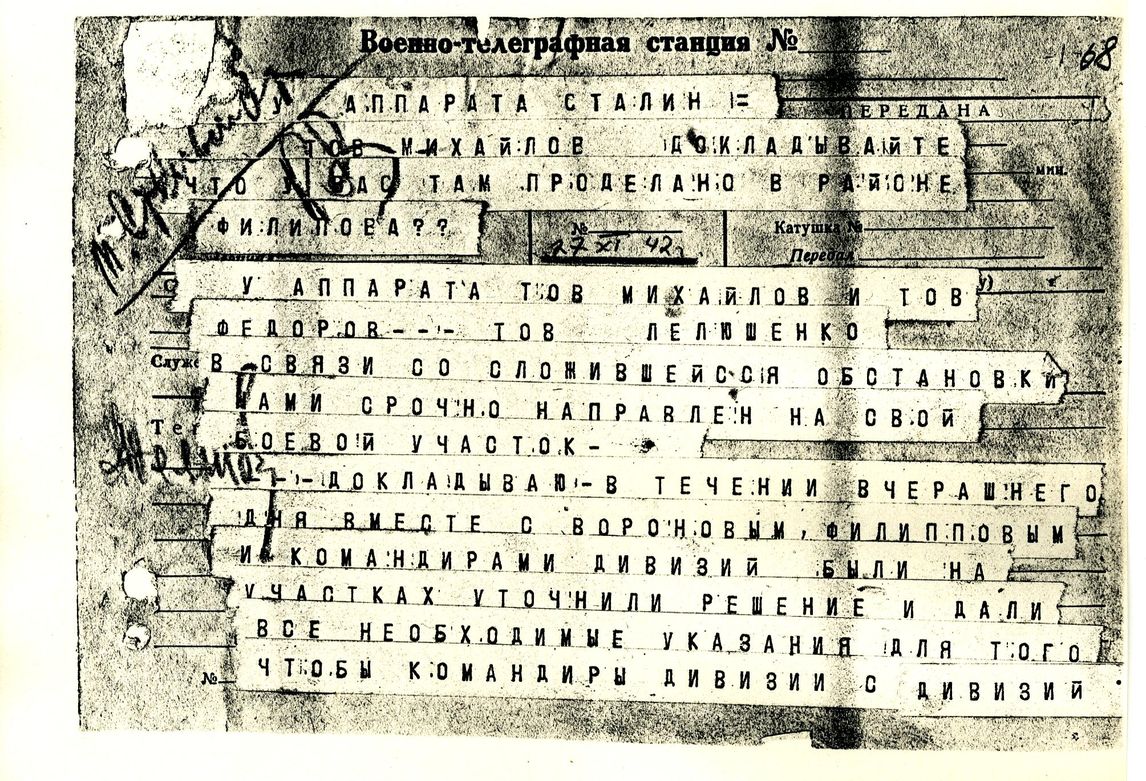 Военно-телеграфная станция №
68
У АППАРАТА СТАЛИН !=
ПЕРЕДАНА
ТОВ МИХАЙЛОВ ДОКЛАДЫВАЙТЕ
ЧТО У ВАС ТАМ ПРОДЕЛАНО В РАЙОНЕ
мин.
ФИЛИПОВА??
№
27 XI 42
Катушка №
Передал
У АППАРАТА ТОВ МИХАЙЛОВ И ТОВ
ФЕДОРОВ--- ТОВ ЛЕЛЮШЕНКО
В СВЯЗИ СО СЛОЖИВШЕЙССЯ ОБСТАНОВКИ
НАМИ СРОЧНО НАПРАВЛЕН НА СВОЙ
БОЕВОЙ УЧАСТОК-
--ДОКЛАДЫВАЮ-В ТЕЧЕНИИ ВЧЕРАШНЕГО
ДНЯ ВМЕСТЕ С ВОРОНОВЫМ, ФИЛИППОВЫМ
И КОМАНДИРАМИ ДИВИЗИЙ БЫЛИ НА
УЧАСТКАХ УТОЧНИЛИ РЕШЕНИЕ И ДАЛИ
ВСЕ НЕОБХОДИМЫЕ УКАЗАНИЯ ДЛЯ ТОГО
№ ЧТОБЫ КОМАНДИРЫ ДИВИЗИИ С ДИВИЗИЙ